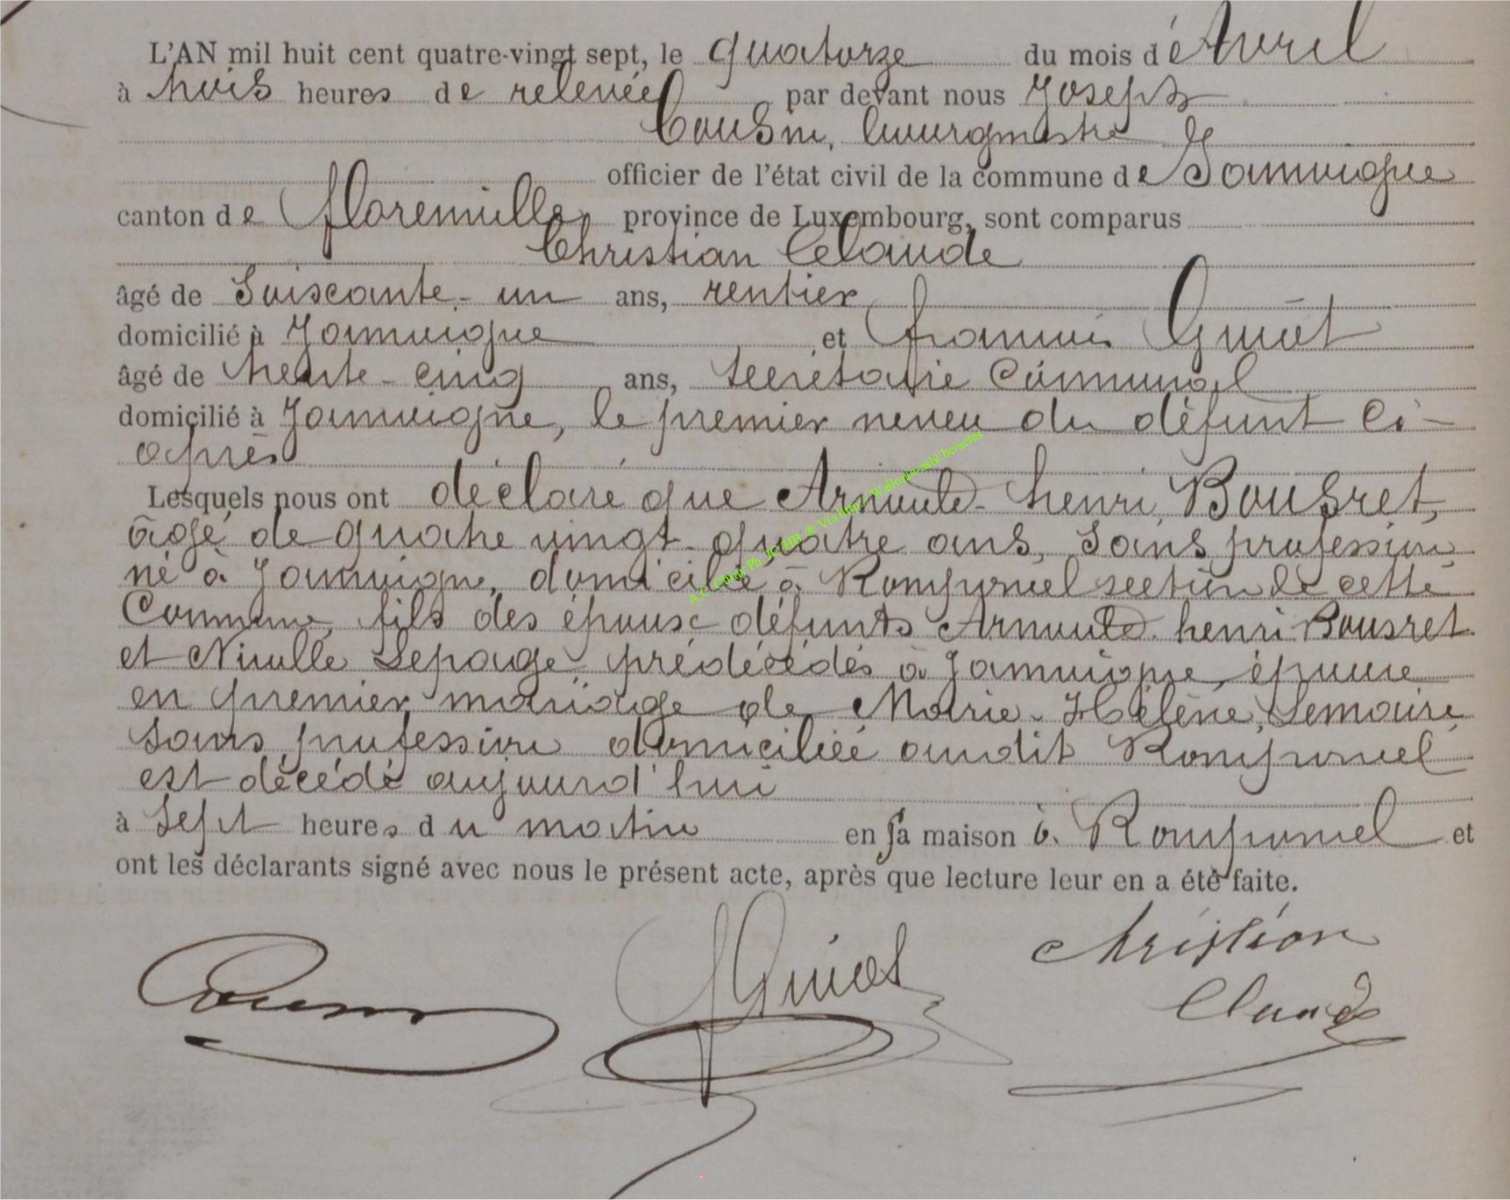 L'AN mil huit cent quatre-vingt sept, le quatorze du mois d'Avril
à trois heures de relevée par devant nous Joseph
Cousin, bourgmestre
officier de l'état civil de la commune de Jamoigne
canton de florenville, province de Luxembourg, sont comparus
Christian Claude
âgé de Soixante-un ans, rentier
domicilié à Jamoigne et francois Guiot
âgé de trente-cinq ans, Secrétaire Communal
domicilié à Jamoigne, le premier neveu du défunt ci-
après
Lesquels nous ont déclaré que Arnould-henri Bousret,
âgé de quatre vingt-quatre ans, sans profession
né à Jamoigne, domicilié à Romponcel section de cette
Commune, fils des époux défunts Arnould henri Bousret
et Nicolle Lepage prédécédés à Jamoigne, époux
en premier mariage de Marie-Hélène Lemaire
sans profession domiciliée audit Romponcel
est décédé aujourd'hui
à Sept heures du matin en sa maison à Romponcel et
ont les déclarants signé avec nous le présent acte, après que lecture leur en a été faite.
Cousin JGuiot christian
Claude